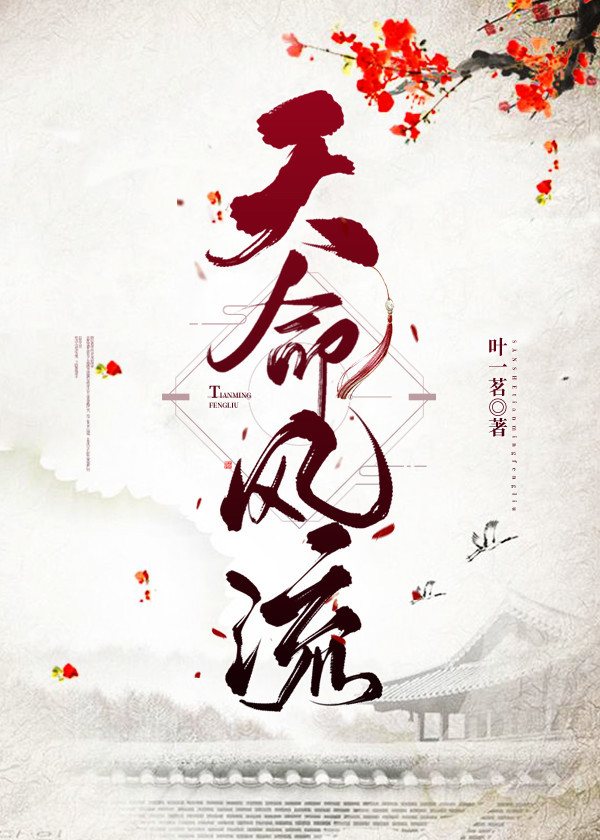 天命风流
TIANMING
FENGLIU
叶一茗◎著
SANSHEtianmingfengliu